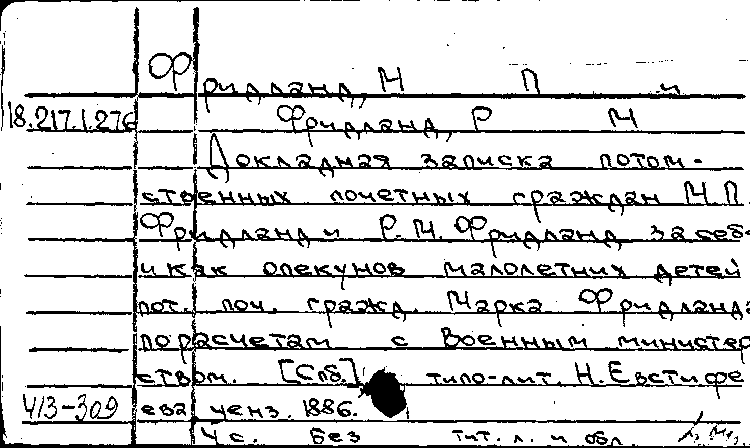 Фридланд, М П и
18.217.1.276 Фридланд, Р М
Докладная записка потом-
ственных почетных граждан М.П.
Фридланд и Р.М. Фридланд за себ-
и как опекунов малолетних детей
пот. поч. гражд. Марка Фридланда
по расчетам с Военным министер
ством. [Спб.] типо-лит. Н. Евстифе
413-309 ева ценз. 1886.
4 с. Без тит. л. и обл.